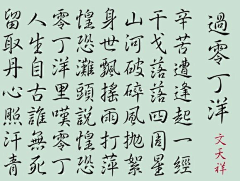 過零丁洋
文天祥
辛苦遭逢起一經
干戈落落四周星
山河破碎風抛絮
身世飄搖雨打萍
惶恐灘頭說惶恐
零丁洋里嘆零丁
人生自古誰無死
留取丹心照汗青